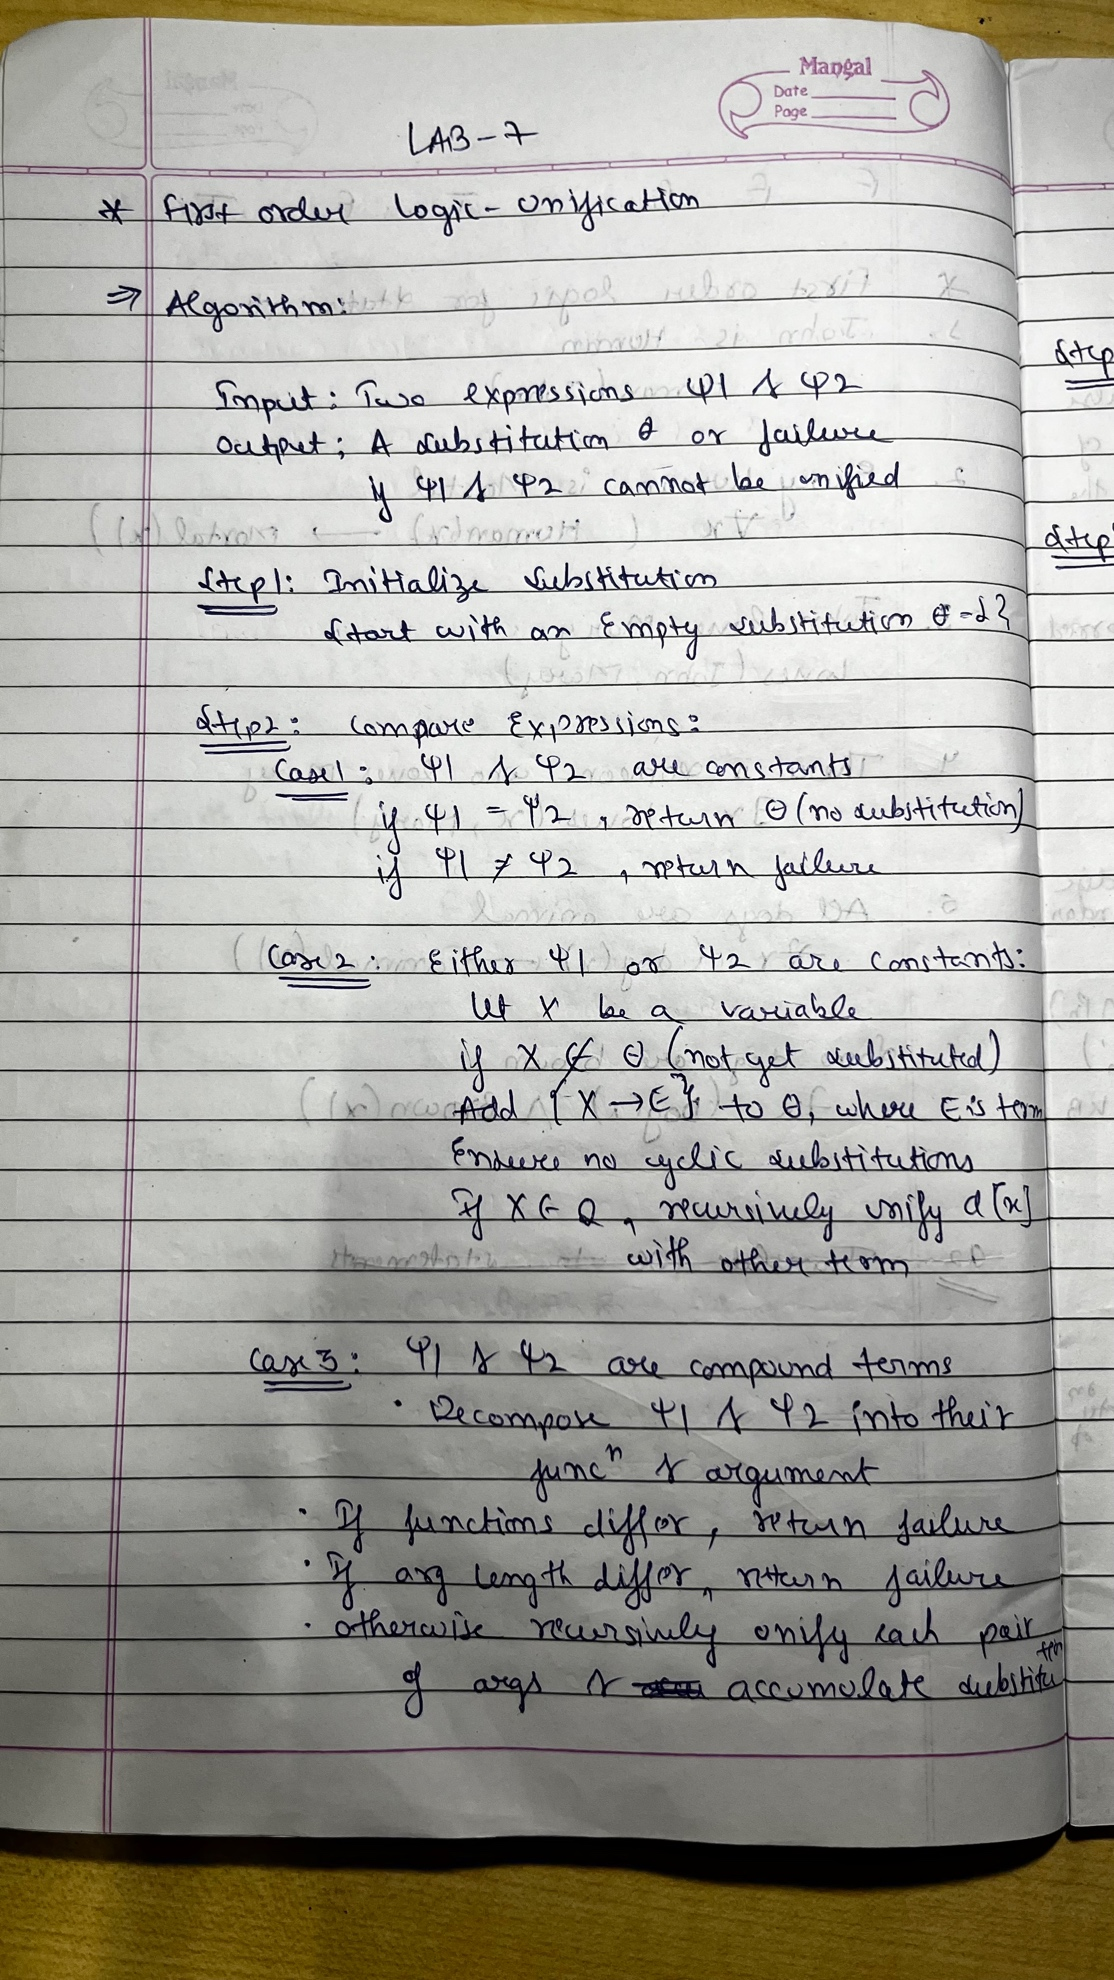 Mangal
Date
Page
LAB-7
* First order logic - unification
⇒ Algorithm:
Input: Two expressions ψ1 & ψ2
Output: A substitution θ or failure
if ψ1 & ψ2 cannot be unified
Step1: Initialize substitution
Start with an Empty substitution θ = { }
Step2: Compare Expressions:
Case1: ψ1 & ψ2 are constants
if ψ1 = ψ2, return θ (no substitution)
if ψ1 ≠ ψ2, return failure
Case 2: Either ψ1 or ψ2 are constants:
Let X be a variable
if X ∉ θ (not yet substituted)
Add {X → E} to θ, where E is term
Ensure no cyclic substitutions
If X ∈ Q, recursively unify θ[x]
with other term
Case 3: ψ1 & ψ2 are compound terms
· Decompose ψ1 & ψ2 into their
funcⁿ & argument
· If functions differ, return failure
· If arg length differ, return failure
· otherwise recursively unify each pair
of args & accumulate substitution
Step
Step